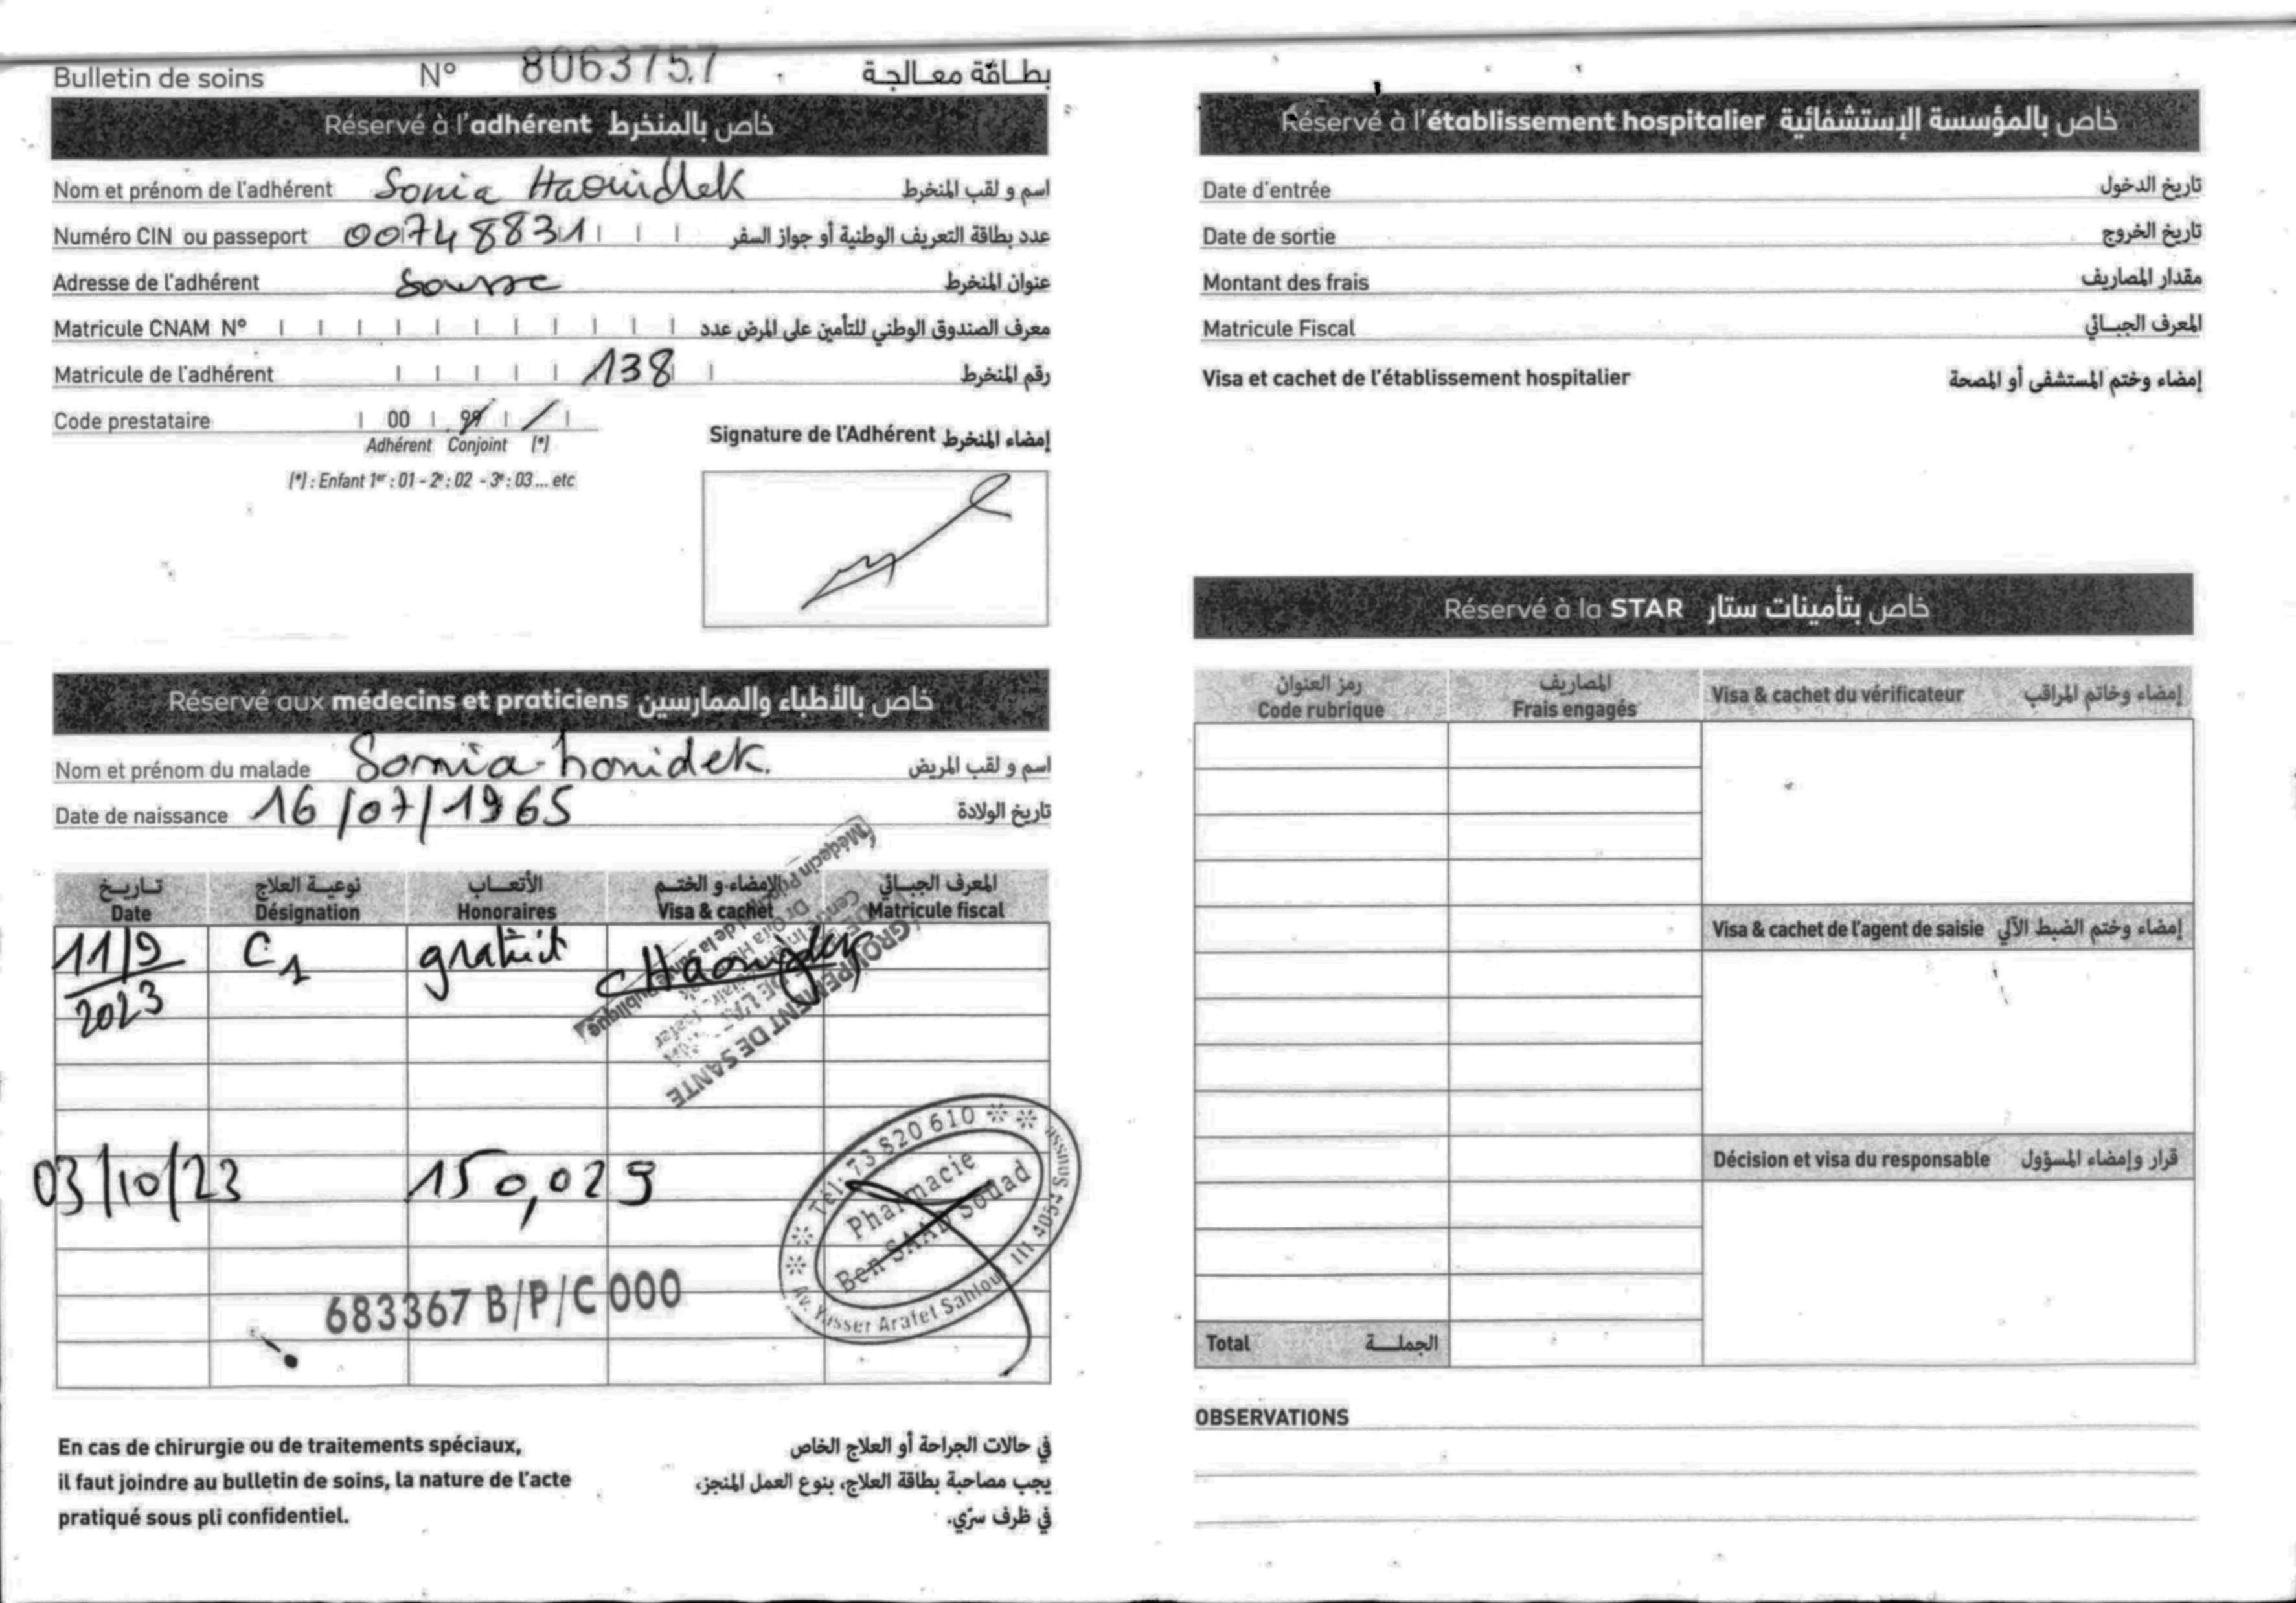 Bulletin de soins N° 8063757 بطاقة معالجة
Réservé à l'adhérent خاص بالمنخرط
Nom et prénom de l'adhérent Sonia Haouidek اسم و لقب المنخرط
Numéro CIN ou passeport 00748831 عدد بطاقة التعريف الوطنية أو جواز السفر
Adresse de l'adhérent Sousse عنوان المنخرط
Matricule CNAM N° معرف الصندوق الوطني للتأمين على المرض عدد
Matricule de l'adhérent 138 رقم المنخرط
Code prestataire 00 99
Adhérent Conjoint (*)
(*) : Enfant 1er : 01 - 2e : 02 - 3e : 03 ... etc
Signature de l'Adhérent إمضاء المنخرط
Réservé aux médecins et praticiens خاص بالأطباء والممارسين
Nom et prénom du malade Sonia houidek. اسم و لقب المريض
Date de naissance 16/07/1965 تاريخ الولادة
تاريخ نوعية العلاج الأتعاب الإمضاء و الختم المعرف الجبائي
Date Désignation Honoraires Visa & cachet Matricule fiscal
11/9 C1 gratuit
2023
GROUPEMENT DE SANTE
03/10/23 150,029
Tél: 73 820 610
Pharmacie
Ben SAAD Souad
Av. Yasser Arafet Sahloul III 4054 Sousse
683367 B/P/C 000
En cas de chirurgie ou de traitements spéciaux,
il faut joindre au bulletin de soins, la nature de l'acte
pratiqué sous pli confidentiel.
في حالات الجراحة أو العلاج الخاص
يجب مصاحبة بطاقة العلاج، بنوع العمل المنجز،
في ظرف سرّي.
Réservé à l'établissement hospitalier خاص بالمؤسسة الإستشفائية
Date d'entrée تاريخ الدخول
Date de sortie تاريخ الخروج
Montant des frais مقدار المصاريف
Matricule Fiscal المعرف الجبائي
Visa et cachet de l'établissement hospitalier إمضاء وختم المستشفى أو المصحة
Réservé à la STAR خاص بتأمينات ستار
رمز العنوان المصاريف
Code rubrique Frais engagés Visa & cachet du vérificateur إمضاء وخاتم المراقب
Visa & cachet de l'agent de saisie إمضاء وختم الضبط الآلي
Décision et visa du responsable قرار وإمضاء المسؤول
Total الجملة
OBSERVATIONS